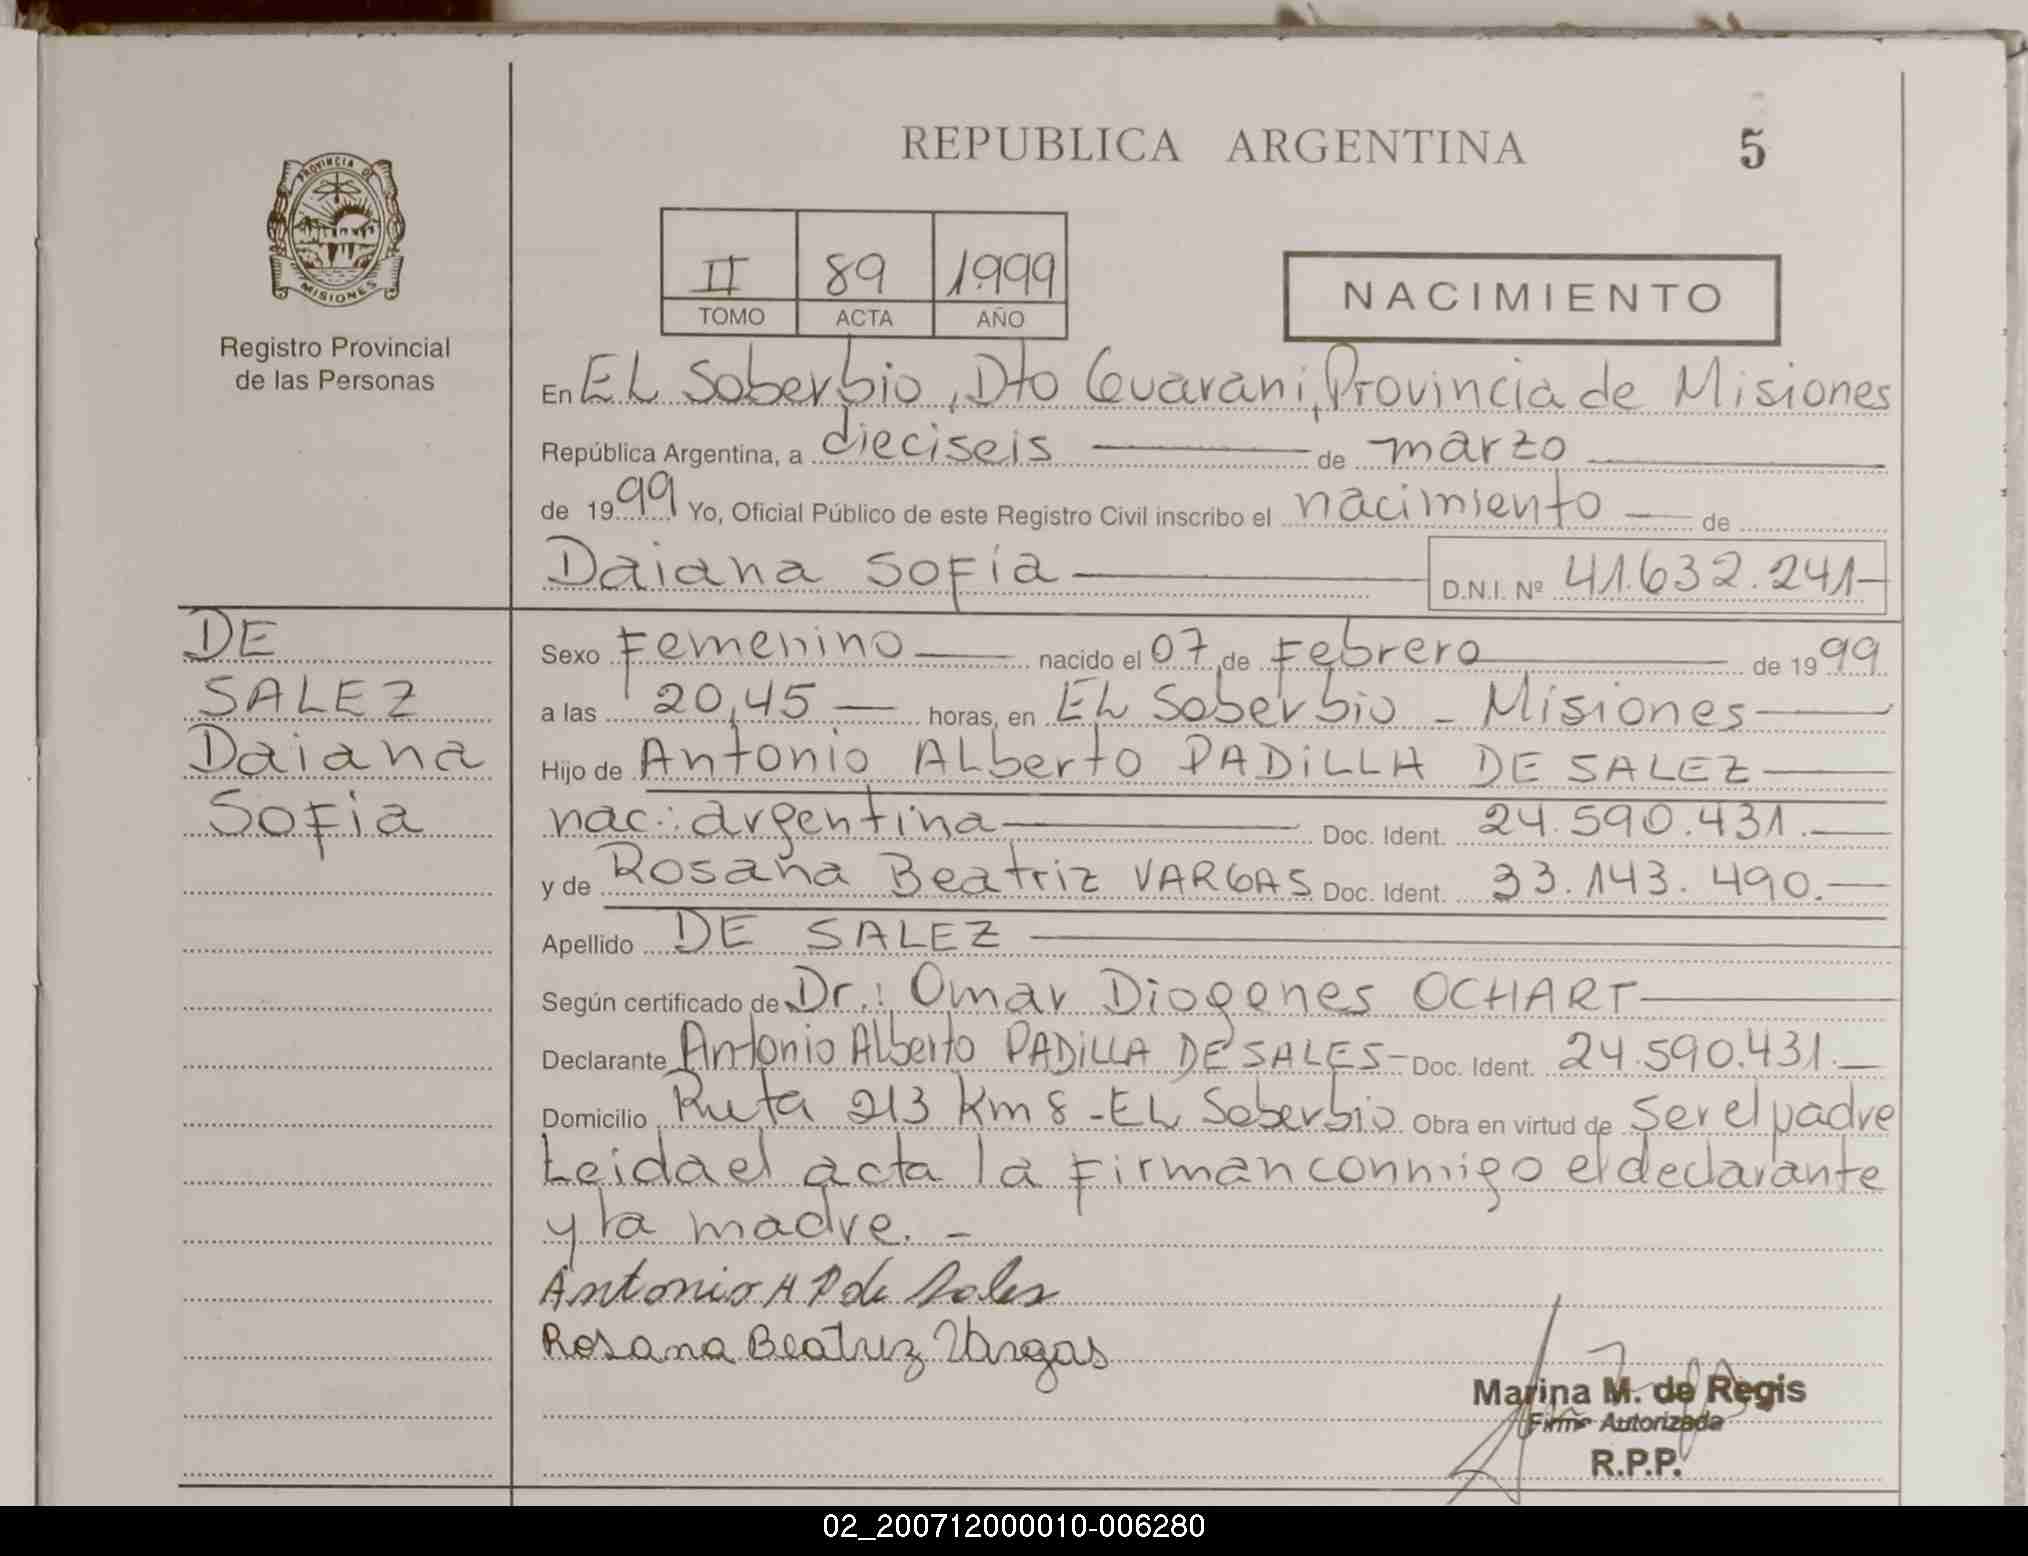 REPUBLICA ARGENTINA
5
PROVINCIA DE
MISIONES
Registro Provincial
de las Personas
II 89 1999
TOMO ACTA AÑO
NACIMIENTO
En EL Soberbio, Dto Guarani, Provincia de Misiones
República Argentina, a dieciseis de marzo
de 1999 Yo, Oficial Público de este Registro Civil inscribo el nacimiento de
Daiana Sofia D.N.I. Nº 41.632.241
DE
SALEZ
Daiana
Sofia
Sexo Femenino nacido el 07 de Febrero de 1999
a las 20,45 horas, en EL Soberbio - Misiones
Hijo de Antonio ALberto PADiLLA DE SALEZ
nac: argentina Doc. Ident. 24.590.431.
y de Rosana Beatriz VARGAS Doc. Ident. 33.143.490.
Apellido DE SALEZ
Según certificado de Dr.: Omar Diogenes OCHART
Declarante Antonio Alberto PADiLLA DE SALES- Doc. Ident. 24.590.431.
Domicilio Ruta 213 Km 8 - EL Soberbio Obra en virtud de Ser el padre
Leida el acta la Firman conmigo el declarante
y la madre. -
Antonio A P de Sales
Rosana Beatriz Vargas
Marina M. de Regis
Firma Autorizada
R.P.P.
02_200712000010-006280